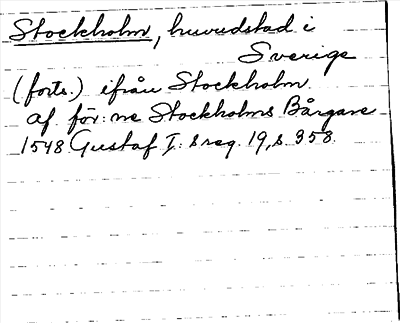 Stockholm, huvudstad i
Sverige
(forts.) ifrån Stockholm
af för:ne Stockholms Bårgare
1548 Gustaf I: s reg. 19, s. 358.